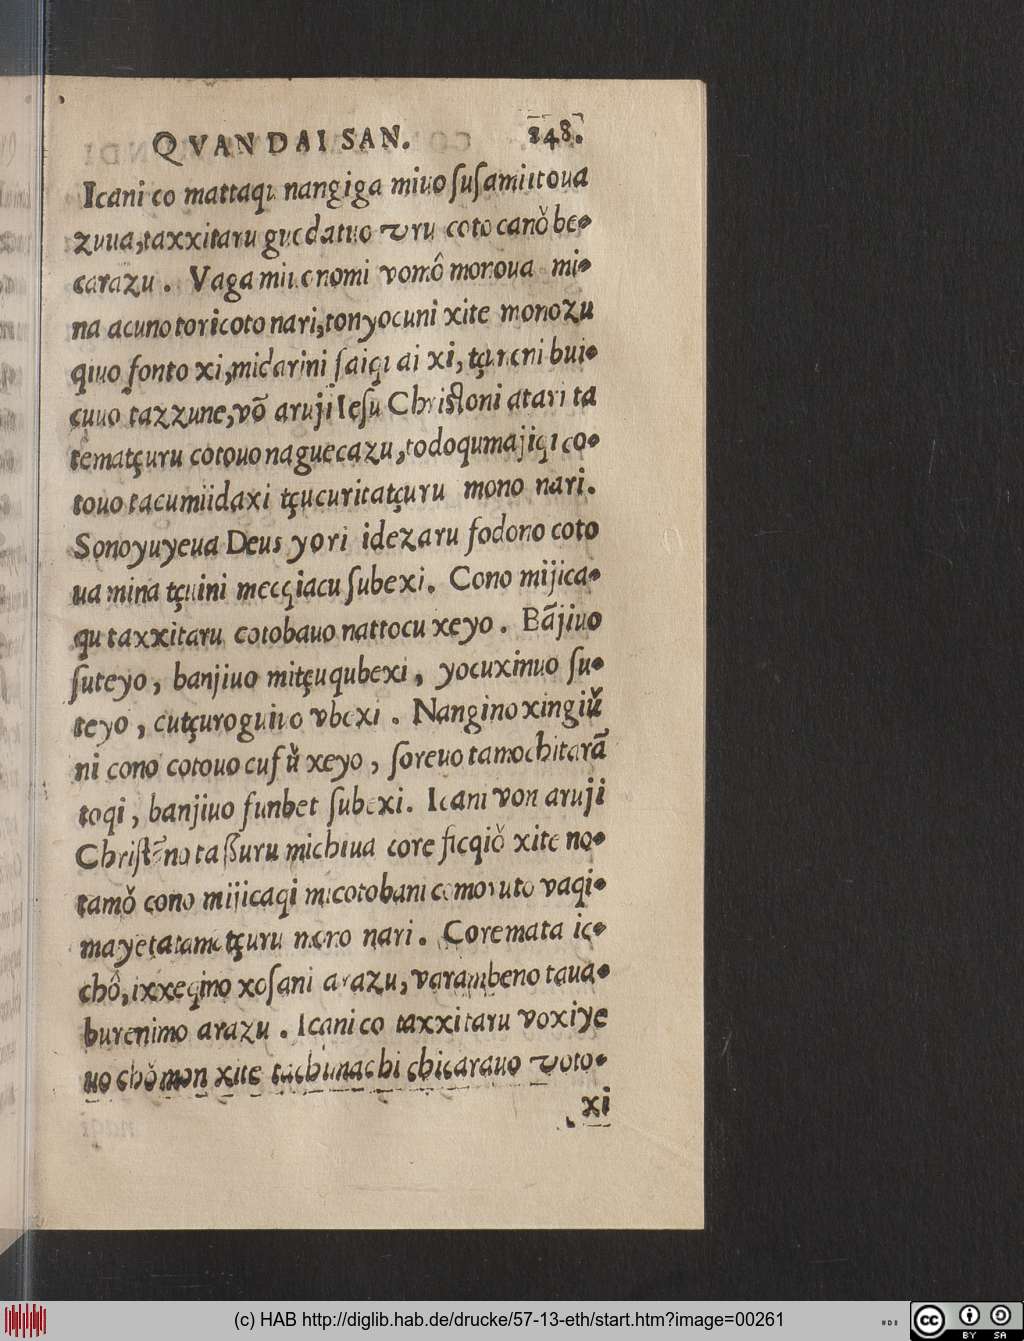 QVAN DAI SAN. 248.
Icani co mattaqu nangiga miuo ſuſamiitoua
zuua, taxxitaru guedatuo vru coto canŏ be-
carazu. Vaga miuo nomi vomô monoua mi-
na acuno tori coto nari, ton yocuni xite monozu
quuo fonto xi, midarini ſaiqi ai xi, tçureni bui-
cuuo tazzune, võ aruji Ieſu Chriſtoni atari ta
tematçuru cotouo naguecazu, todoqumajiqi co-
touo tacumiidaxi tçucuritatçuru mono nari.
Sonoyuyeua Deus yori idezaru fodono coto
ua mina tçuini mecqiacu ſubexi. Cono mijica-
qu taxxitaru cotobauo nattocu xeyo. Bãjiuo
ſuteyo, banjiuo mitçuqubexi, yocuxinuo ſu-
teyo, cutçuroguiuo vbexi. Nangino xingiŭ
ni cono cotouo cufŭ xeyo, ſoreuo tamochitarã
toqi, banjiuo funbet ſubexi. Icani von aruji
Chriſtẽno taſſuru michiua core ficqiŏ xite no-
tamŏ cono mijicaqi micotobani comoruto vaqi-
mayetatamatçuru mono nari. Coremata ic-
chô, ixxeqino xoſani arazu, varambeno taua-
burenimo arazu. Icani co taxxitaru voxiye
uo chŏmon xite tachimachi chicarauo voto-
xi
(c) HAB http://diglib.hab.de/drucke/57-13-eth/start.htm?image=00261
cc BY SA